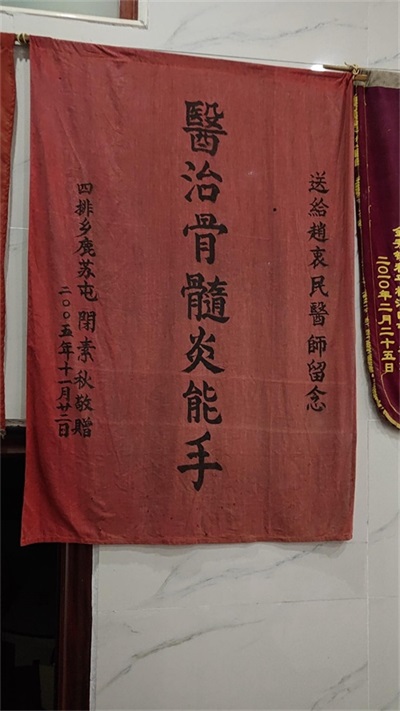 送給趙衷民醫師留念
醫治骨髓炎能手
四排乡鹿苏屯閉素秋敬贈
二〇〇五年十一月廿二日
二〇一〇年二月二十五日